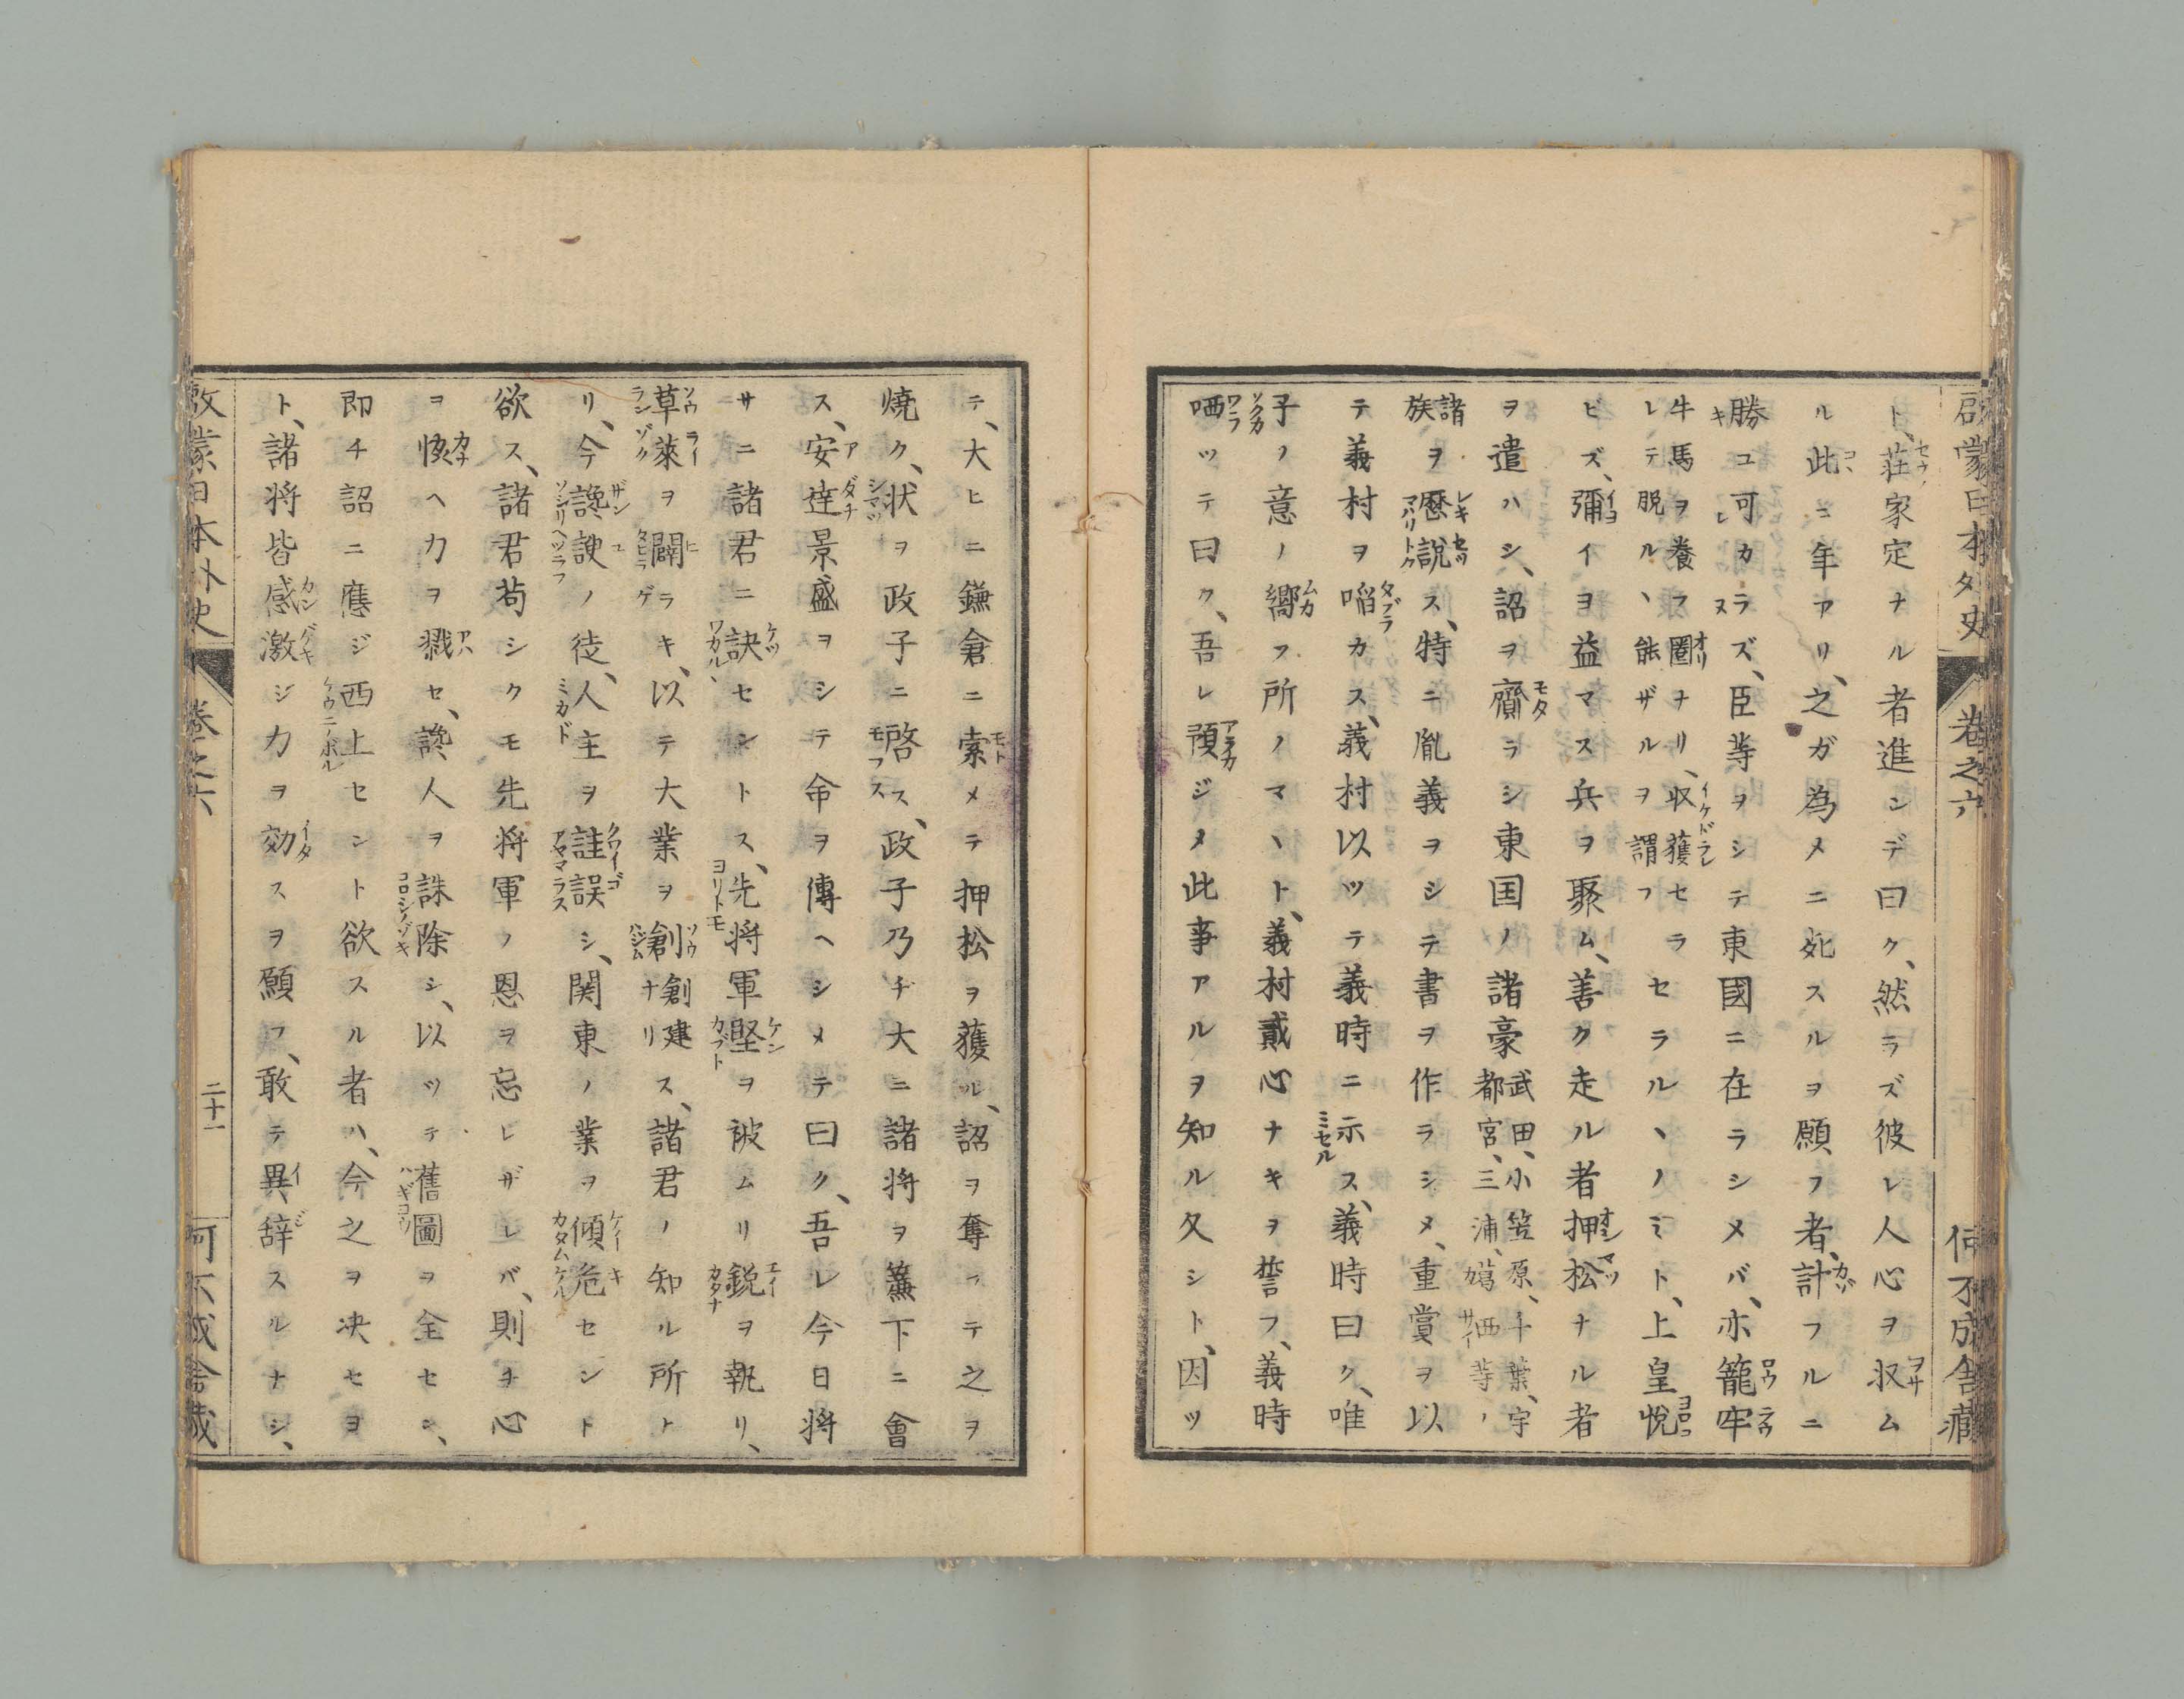 啓蒙日本外史 卷之六 何不成舎藏
ト、莊家定ナル者進ンデ曰ク、然ラズ彼レ人心ヲ収ム
ル此ニ年アリ、之ガ為メニ死スルヲ願フ者、計フルニ
勝ユ可カラズ、臣等ヲシテ東國ニ在ラシメバ、亦籠牢
牛馬ヲ養フ圏ナリ、収獲セラ
レテ脱ル丶能ザルヲ謂フ
セラル丶ノミト、上皇悅
ビズ、彌イヨ益マス兵ヲ聚ム、善ク走ル者押松ナル者
ヲ遣ハシ、詔ヲ齎ラシ東国ノ諸豪
武田、小笠原、千葉、宇
都宮、三浦、葛西等ノ
諸
族
ヲ歴説ス、特ニ胤義ヲシテ書ヲ作ラシメ、重賞ヲ以
テ義村ヲ啗カス、義村以ツテ義時ニ示ス、義時曰ク、唯
子ノ意ノ嚮フ所ノマ丶ト、義村貳心ナキヲ誓フ、義時
哂ツテ曰ク、吾レ預ジメ此事アルヲ知ル久シト、因ツ
テ、大ヒニ鎌倉ニ索メテ押松ヲ獲ル、詔ヲ奪フテ之ヲ
焼ク、状ヲ政子ニ啓ス、政子乃チ大ニ諸将ヲ簾下ニ會
ス、安達景盛ヲシテ命ヲ傳ヘシメテ曰ク、吾レ今日将
サニ諸君ニ訣セントス、先将軍堅ヲ被ムリ鋭ヲ執リ、
草萊ヲ闢ラキ、以テ大業ヲ創
創建
ナリ
ス、諸君ノ知ル所ト
リ、今讒諛ノ徒、人主ヲ詿誤シ、関東ノ業ヲ傾危セント
欲ス、諸君苟シクモ先将軍ノ恩ヲ忘レザレバ、則チ心
ヲ恊ヘ力ヲ戮セ、讒人ヲ誅除シ、以ツテ舊圖ヲ全セヨ、
即チ詔ニ應ジ西上セシト欲スル者ハ、今之ヲ决セヨ
ト、諸将皆感激ジ力ヲ効スヲ願フ、敢テ異辞スルナシ、
啓蒙日本外史 卷之六 二十一 何不成舎藏